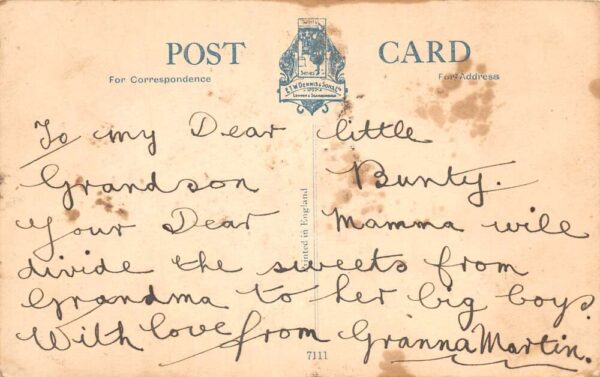 POST CARD
For Correspondence
For Address
Series
E.T.W. DENNIS & SONS Ltd
LONDON & SCARBOROUGH
To my Dear little
Grandson Bunty.
Your Dear Mamma will
divide the sweets from
Grandma to her big boys.
With love from Granna Martin.
Printed in England
7111